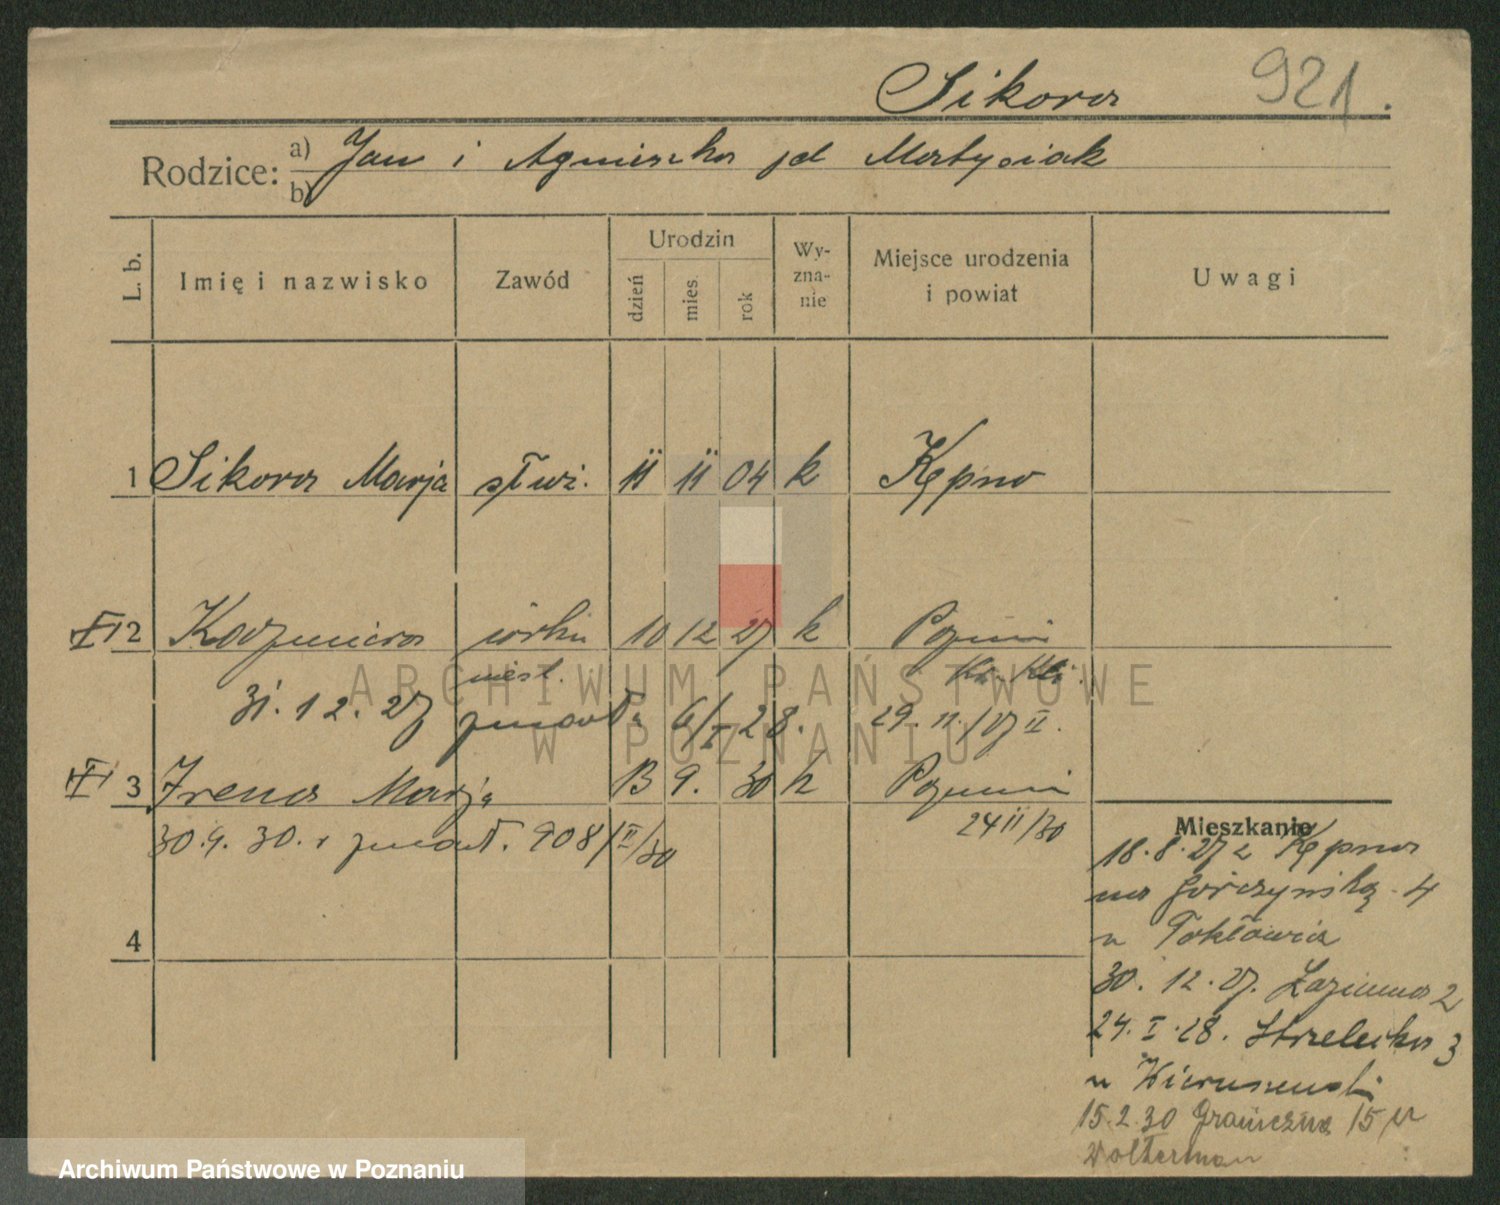 Sikora 921.
Rodzice: a) Jan i Agnieszka jd Matysiak
b)
L. b. Imię i nazwisko Zawód Urodzin dzień mies. rok Wyznanie Miejsce urodzenia i powiat Uwagi
1 Sikora Marja służ. 11 11 04 k Kępno
2 Kazmiera córka 10 12 27 k
nieśl.
31.12.27 zmarła 6/I 28. 29.11./27 II.
3 Irena Marja 13 9. 30 k
24 II/30
30.9.30. zmarł. 908/II/30
4
Mieszkanie
18.8.27 z Kępna
na Górczyńską 4
u
30.12.27. Łazienna 2
24.I.28. Strzelecka 3
u Wieruszewski
15.2.30 Graniczna 15 u
Wolterman
ARCHIWUM PAŃSTWOWE
W POZNANIU
Archiwum Państwowe w Poznaniu